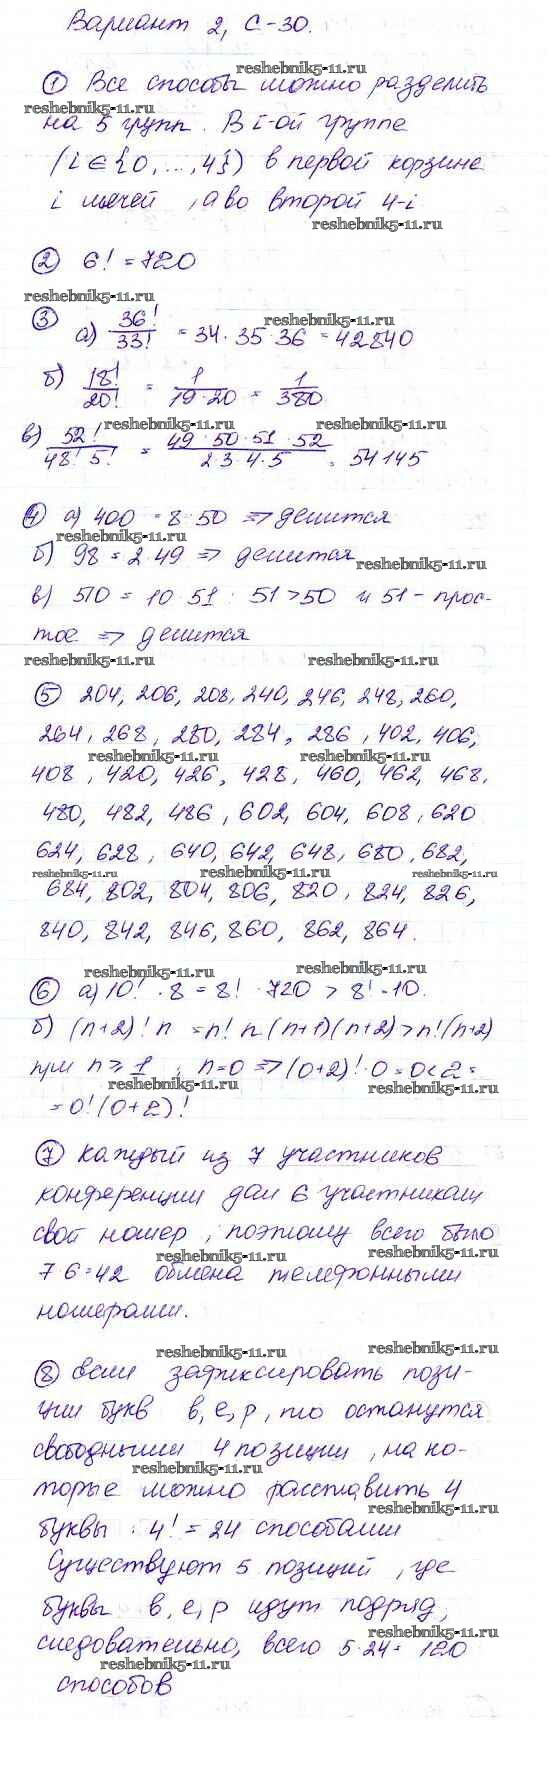 Вариант 2, С-30.
reshebnik5-11.ru
① Все способы можно разделить
reshebnik5-11.ru
на 5 групп. В i-ой группе
(i ∈ {0, ..., 4}) в первой корзине
i мячей, а во второй 4-i
reshebnik5-11.ru
② 6! = 720
reshebnik5-11.ru
reshebnik5-11.ru
③ а) 36!/33! = 34 · 35 · 36 = 42840
б) 18!/20! = 1/19·20 = 1/380
reshebnik5-11.ru
в) 52!/48! 5! = 49 · 50 · 51 · 52/2·3·4·5 = 54145
④ а) 400 = 8 · 50 => делится
reshebnik5-11.ru
б) 98 = 2 · 49 => делится
reshebnik5-11.ru
в) 510 = 10 · 51 : 51 > 50 и 51 - прос-
тое => делится
reshebnik5-11.ru reshebnik5-11.ru
⑤ 204, 206, 208, 240, 246, 248, 260,
264, 268, 280, 284, 286, 402, 406,
reshebnik5-11.ru reshebnik5-11.ru
408, 420, 426, 428, 460, 462, 468,
480, 482, 486, 602, 604, 608, 620
624, 628, 640, 642, 648, 680, 682,
reshebnik5-11.ru reshebnik5-11.ru
684, 802, 804, 806, 820, 824, 826,
840, 842, 846, 860, 862, 864.
reshebnik5-11.ru reshebnik5-11.ru
⑥ а) 10! · 8 = 8! · 720 > 8! · 10.
б) (n+2)! n = n! n (n+1)(n+2) > n!(n+2)
при n ≥ 1 ; n=0 => (0+2)! · 0 = 0 < 2 =
reshebnik5-11.ru reshebnik5-11.ru
= 0! (0+2)!
⑦ Каждый из 7 участников
конференции дал 6 участникам
свой номер, поэтому всего было
reshebnik5-11.ru reshebnik5-11.ru
7·6=42 обмена телефонными
номерами.
reshebnik5-11.ru reshebnik5-11.ru
⑧ Если зафиксировать пози-
ции букв в, е, р, то останутся
свободными 4 позиции, на ко-
reshebnik5-11.ru
торые можно расставить 4
reshebnik5-11.ru
буквы 4! = 24 способами
Существуют 5 позиций, где
буквы в, е, р идут подряд,
следовательно, всего 5·24 = 120
reshebnik5-11.ru reshebnik5-11.ru
способов